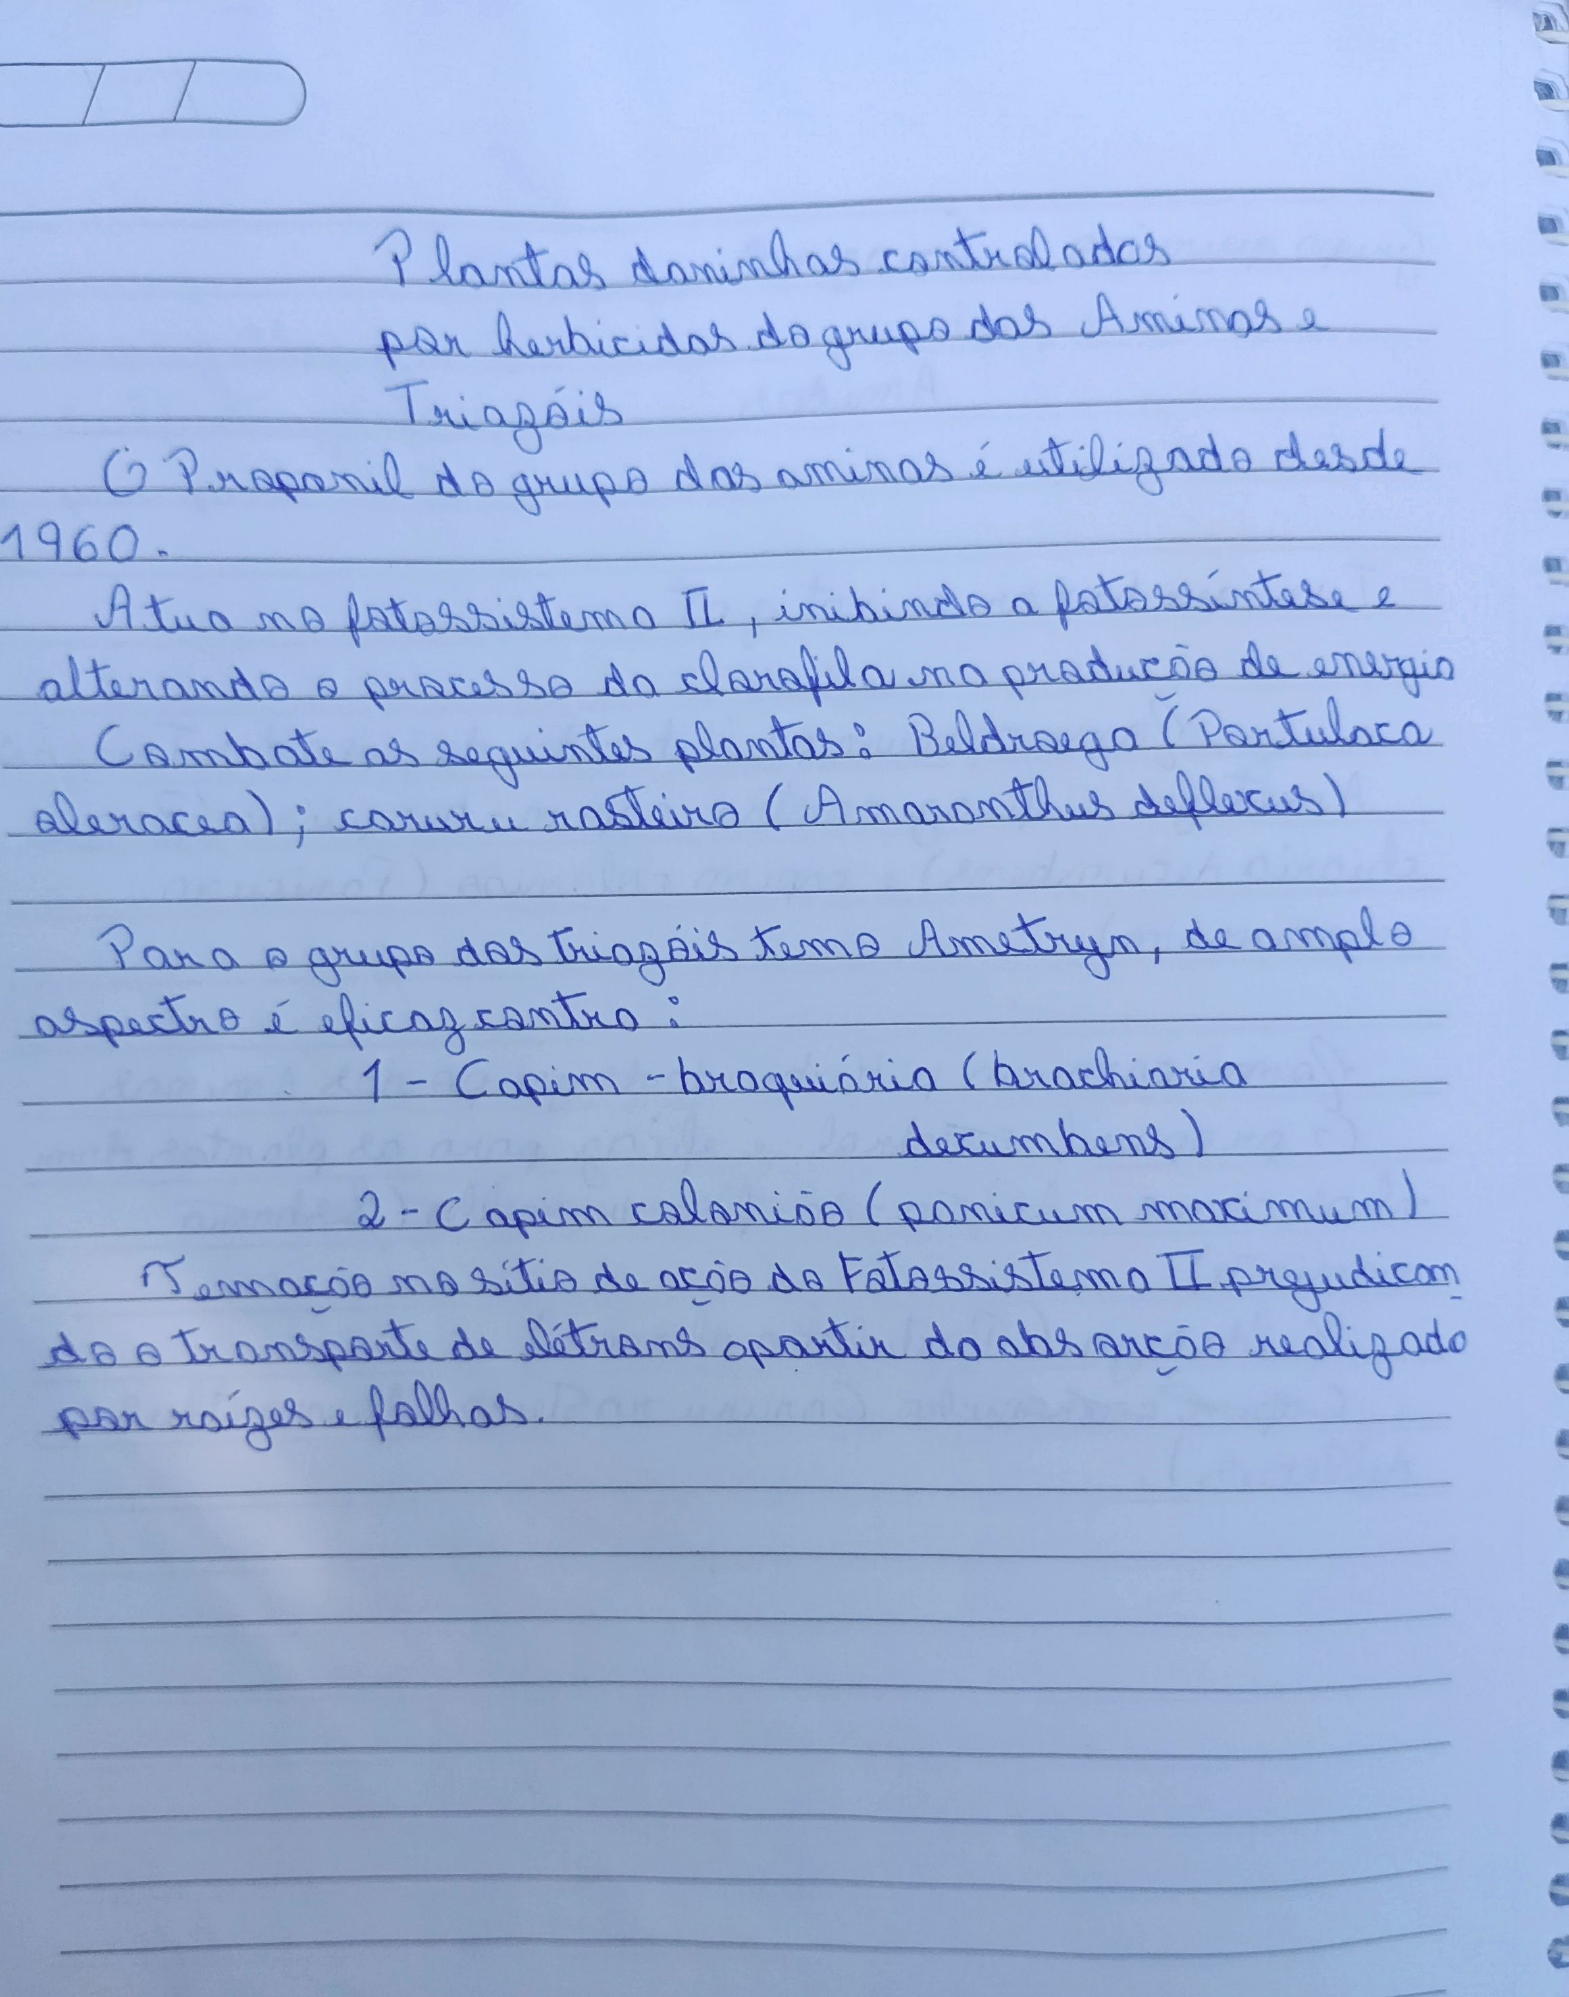 Plantas daninhas controladas
por herbicidas do grupo das Aminas e
Triazóis
O Propanil do grupo das aminas é utilizado desde
1960.
Atua no fotossistema II, inibindo a fotossíntese e
alterando o processo da clorofila na produção de energia
Combate as seguintes plantas: Beldroega (Portulaca
oleracea); caruru rasteiro (Amaranthus deflexus)
Para o grupo dos triazóis temo Ametryn, de amplo
aspectro é eficaz contra:
1 - Capim - braquiária (brachiaria
decumbens)
2 - Capim colonião (panicum maximum)
Tem ação no sítio de ação do Fotossistema II prejudican
do o transporte de elétrons apartir da absorção realizada
por raízes e folhas.